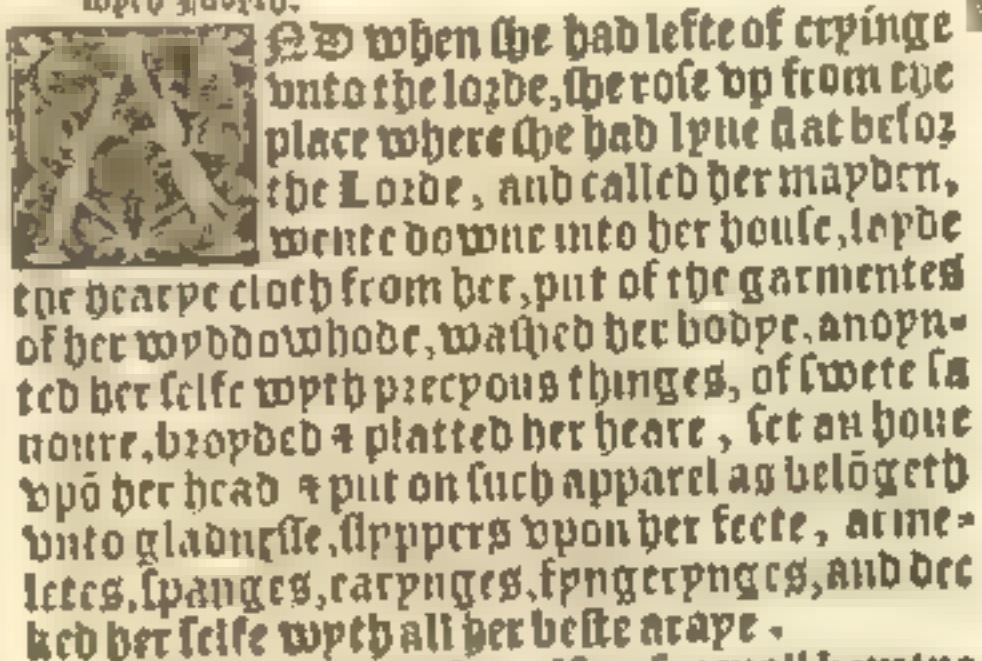 AND when she had lefte of cryinge
vnto the lorde, she rose vp from the
place where she had lyne flat befor
the Lorde, and called her mayden,
wente downe into her house, layde
the hearye cloth from her, put of the garmentes
of her wyddowhode, washed her bodye, anoyn-
ted her selfe wyth precyous thinges, of swete sa
uoure, broyded & platted her heare, set an houe
vpō her head & put on such apparel as belōgeth
vnto gladnesse, slyppers vpon her feete, arme-
letes, spanges, earynges, fyngerynges, and dec
ked her selfe wyth all her beste araye.